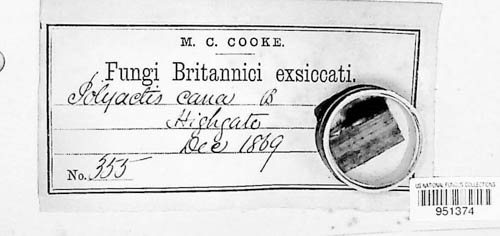 M. C. COOKE.
Fungi Britannici exsiccati.
Polyactis cana B
Highgate
Dec 1869
No. 355
US NATIONAL FUNGUS COLLECTIONS
951374